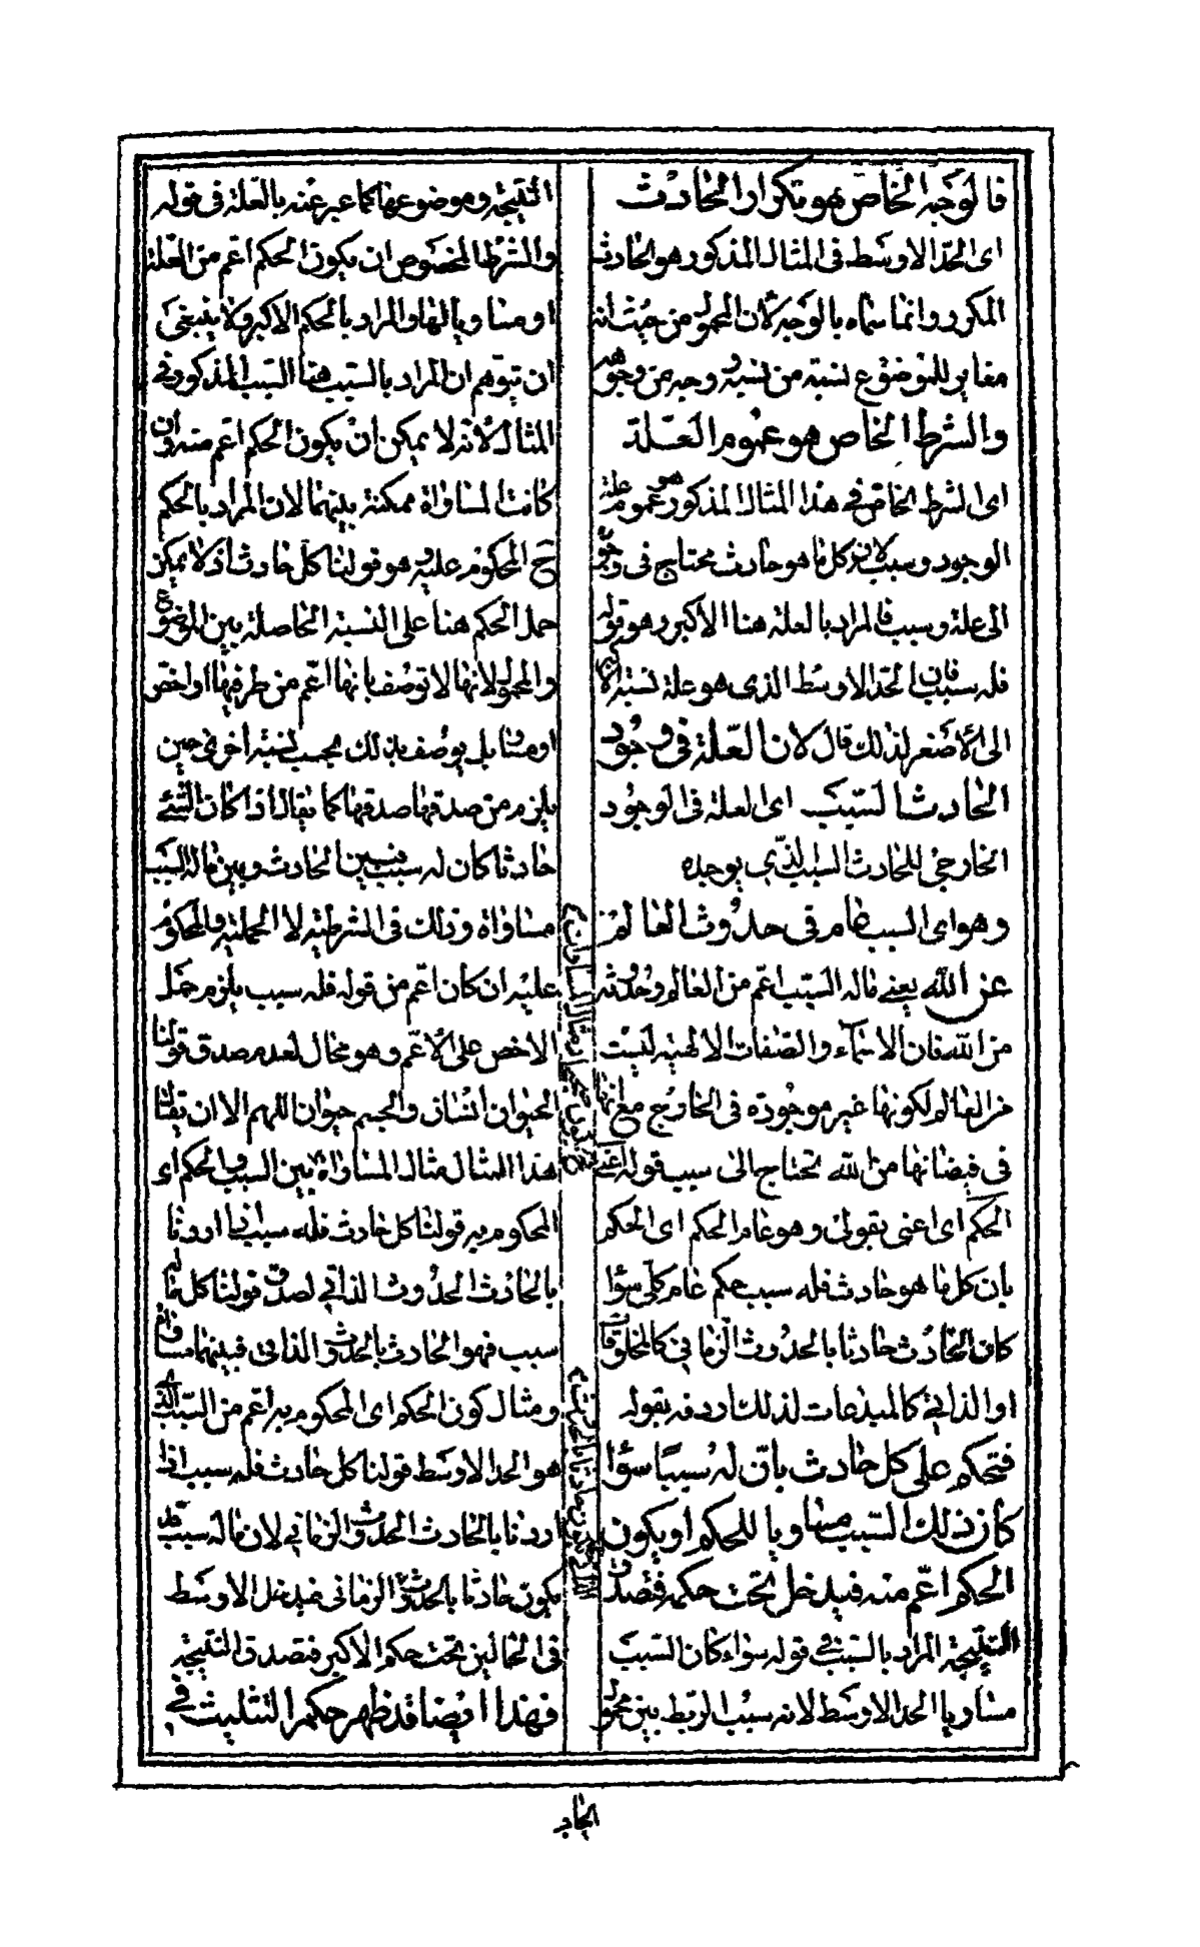 فالوجه الخاص هو تكرار الحادث
اى الحدّ الاوسط فى المثال المذكور هو الحادث
المكرر وانما سماه بالوجه لان المحمول من حيث انه
مغاير للموضوع نسبته من نسبه ووجه من وجوهه
والشرط الخاص هو عموم العلة
اى الشرط الخاص فى هذا المثال المذكور هو عموم علة
الوجود وسببه لان كل ما هو حادث محتاج فى وجوده
الى علة وسبب فالمراد بالعلة هنا الاكبر وهو قوله
فله سبب فان الحدّ الاوسط الذى هو علة نسبة الاكبر
الى الاصغر لذلك قال لان العلة فى وجود
الحادث السبب اى العلة فى الوجود
الخارجى للحادث السبب الذى يوجده
وهو اى السبب عام فى حدوث العالم
عن الله يعنى ما له السبب اعم من العالم وحدوثه
من الله فان الاسماء والصفات الالهية ليست
من العالم لكونها غير موجودة فى الخارج مع انها
فى فيضانها من الله تحتاج الى سبب قوله اعنى
الحكم اى اعنى بقولى وهو عام الحكم اى الحكم
بان كل ما هو حادث فله سبب حكم عام كلى سواء
كان الحادث حادثا بالحدوث الزمانى كالمخلوقات
او الذاتى كالمبدعات لذلك اردفه بقوله
فتحكم على كل حادث بان له سببا سواء
كان ذلك السبب مساويا للحكم او يكون
الحكم اعم منه فيدخل تحت حكمه فتصدق
النتيجة المراد بالسبب فى قوله سواء كان السبب
مساويا الحد الاوسط لانه سبب الربط بين محمول
النتيجة وموضوعها كما عبر عنه بالعلة فى قوله
والشرط المخصوص ان يكون الحكم اعم من العلة
او مساويا لها والمراد بالحكم الاكبر ولا ينبغى
ان يتوهم ان المراد بالسبب هنا السبب المذكور فى
المثال لانه لا يمكن ان يكون الحكم اعم منه وان
كانت المساواة ممكنة بينهما لان المراد بالحكم
ح المحكوم عليه وهو قولنا كل حادث اذ لا يمكن
حمل الحكم هنا على النسبة الحاصلة بين الموضوع
والمحمول لانها لا توصف بانها اعم من طرفيها او اخص
او مساو بل يوصف بذلك بحسب نسبة اخرى حين
يلزم من صدقها صدقها كما يقال اذا كان الشئ
حادثا كان له سبب فبين الحادث وبين ما له السبب
مساواة وذلك فى الشرطية لا الحملية والمحكوم
عليه ان كان اعم من قوله فله سبب يلزم حمل
الاخص على الاعم وهو محال لعدم صدق قولنا
الحيوان انسان والجسم حيوان اللهم الا ان يقال
هذا المثال مثال المساواة بين السبب والحكم اى
المحكوم به قولنا كل حادث فله سبب اذا اردنا
بالحادث الحدوث الذاتى لصدق قولنا كل ما له
سبب فهو الحادث بالحدوث الذاتى فبينهما مساواة
ومثال كون الحكم اى المحكوم به اعم من السبب الذى
هو الحد الاوسط قولنا كل حادث فله سبب اذا
اردنا بالحادث الحدوث الزمانى لان ما له سبب قد
يكون حادثا بالحدوث الزمانى فيدخل الاوسط
فى الحالين تحت حكم الاكبر فتصدق النتيجة
فهذا ايضا قد ظهر حكم التثليث فى